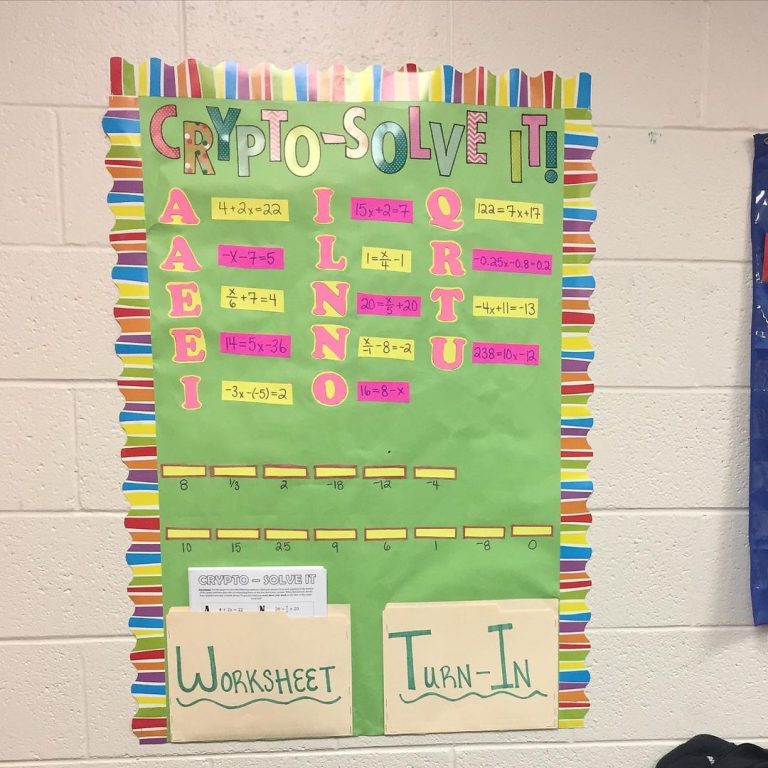 CRYPTO-SOLVE IT!
A 4+2x=22
A -x-7=5
E x/6+7=4
E 14=5x-36
I -3x-(-5)=2
I 15x+2=7
L 1=x/4-1
N 20=x/5+20
N x/-1-8=-2
O 16=8-x
Q 122=7x+17
R -0.25x-0.8=0.2
T -4x+11=-13
U 238=10x-12
8 1/3 2 -18 -12 -4
10 15 25 9 6 1 -8 0
CRYPTO – SOLVE IT
A 4 + 2x = 22 N
WORKSHEET
TURN-IN